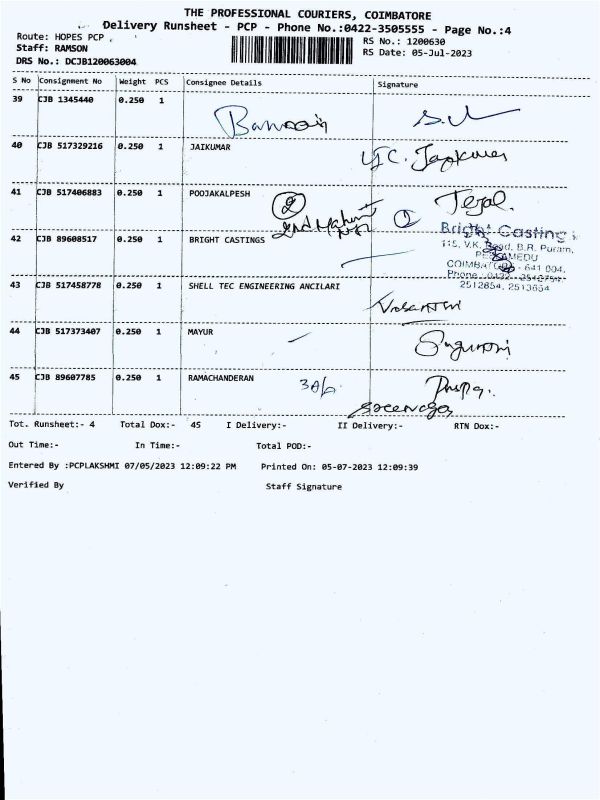 THE PROFESSIONAL COURIERS, COIMBATORE
Delivery Runsheet - PCP - Phone No.:0422-3505555 - Page No.:4
Route: HOPES PCP
RS No.: 1200630
Staff: RAMSON
RS Date: 05-Jul-2023
DRS No.: DCJB120063004
S No Consignment No Weight PCS Consignee Details Signature
39 CJB 1345440 0.250 1
40 CJB 517329216 0.250 1 JAIKUMAR
41 CJB 517406883 0.250 1 POOJAKALPESH Tejal.
42 CJB 89608517 0.250 1 BRIGHT CASTINGS
Bright Castings
115, V.K. Road, B.R. Puram,
COIMBATORE - 641 004.
2512854, 2513654
43 CJB 517458778 0.250 1 SHELL TEC ENGINEERING ANCILARI
44 CJB 517373407 0.250 1 MAYUR
45 CJB 89607785 0.250 1 RAMACHANDERAN
Tot. Runsheet:- 4 Total Dox:- 45 I Delivery:- II Delivery:- RTN Dox:-
Out Time:- In Time:- Total POD:-
Entered By :PCPLAKSHMI 07/05/2023 12:09:22 PM Printed On: 05-07-2023 12:09:39
Verified By Staff Signature